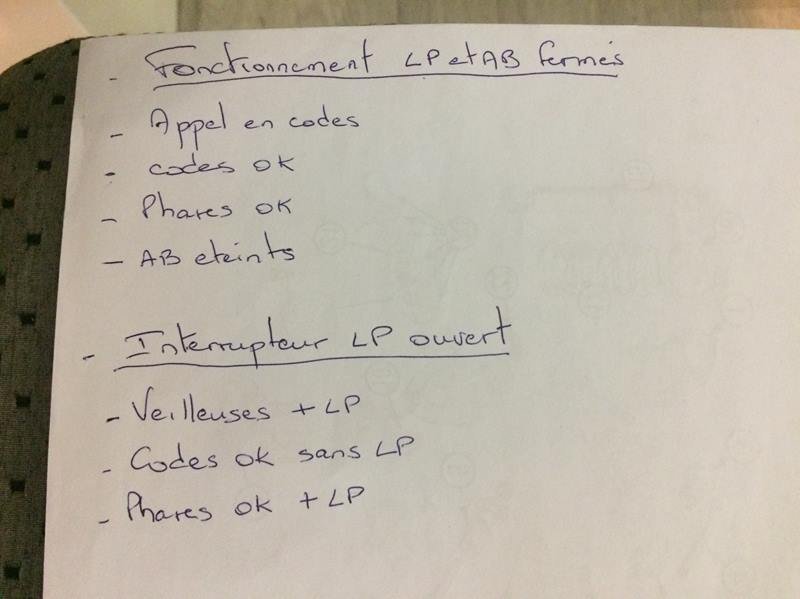 - Fonctionnement LP et AB fermés
- Appel en codes
- codes ok
- Phares ok
- AB eteints
- Interrupteur LP ouvert
- Veilleuses + LP
- Codes ok sans LP
- Phares ok + LP